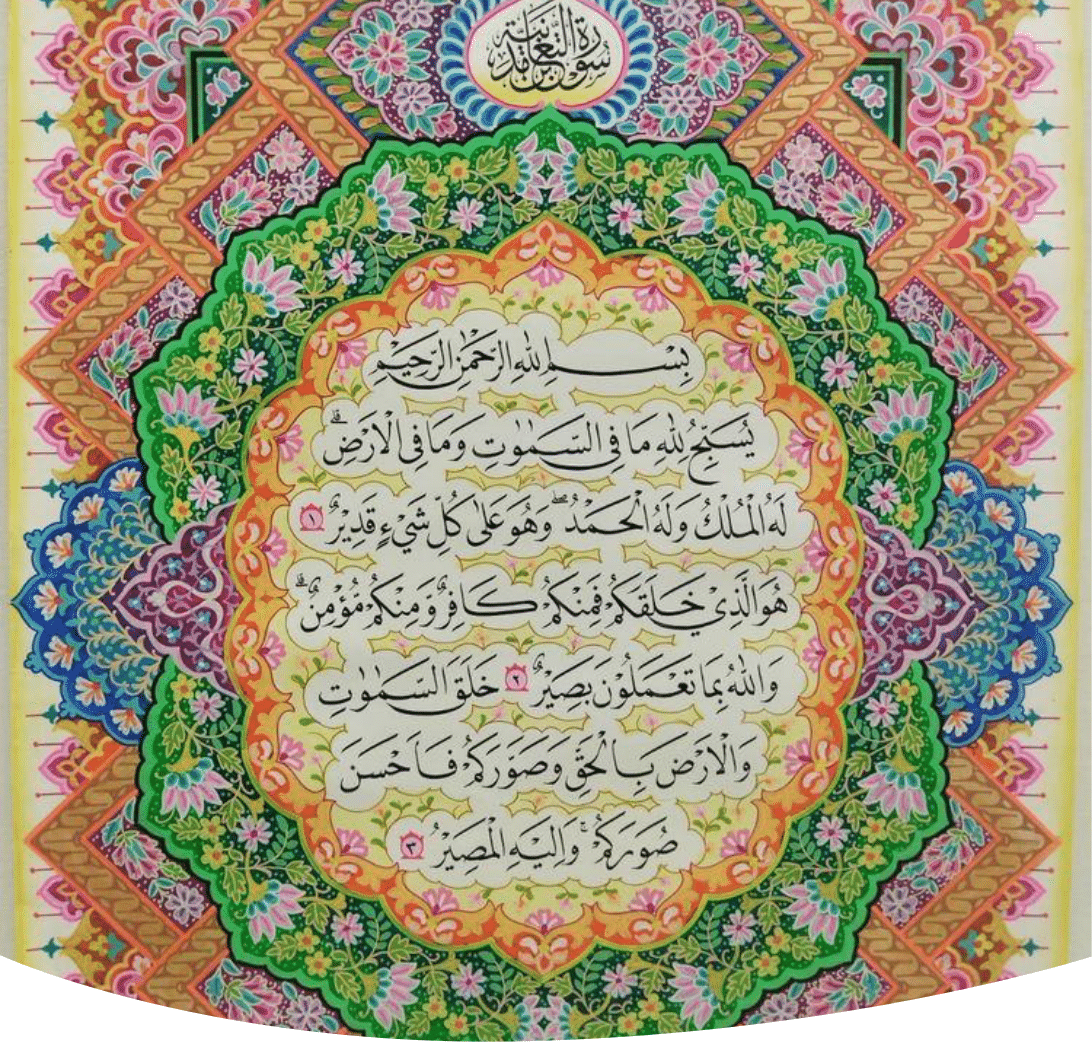 سورة التغابن مدنية
بِسْــــــمِ اللهِ الرَّحْمٰنِ الرَّحِيْمِ
يُسَبِّحُ لِلّٰهِ مَا فِى السَّمٰوٰتِ وَمَا فِى الْاَرْضِۗ
لَهُ الْمُلْكُ وَلَهُ الْحَمْدُۖ وَهُوَ عَلٰى كُلِّ شَيْءٍ قَدِيْرٌ ١
هُوَ الَّذِيْ خَلَقَكُمْ فَمِنْكُمْ كَافِرٌ وَّمِنْكُمْ مُّؤْمِنٌۗ
وَاللّٰهُ بِمَا تَعْمَلُوْنَ بَصِيْرٌ ٢ خَلَقَ السَّمٰوٰتِ
وَالْاَرْضَ بِالْحَقِّ وَصَوَّرَكُمْ فَاَحْسَنَ
صُوَرَكُمْۚ وَاِلَيْهِ الْمَصِيْرُ ٣